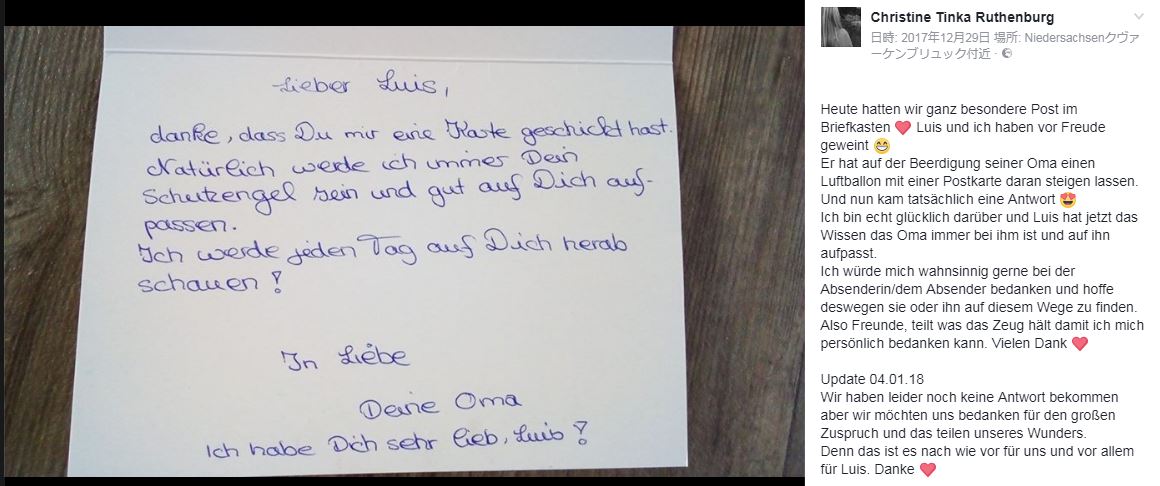 Lieber Luis,
danke, dass Du mir eine Karte geschickt hast.
Natürlich werde ich immer Dein
Schutzengel sein und gut auf Dich auf-
passen.
Ich werde jeden Tag auf Dich herab
schauen!
In Liebe
Deine Oma
Ich habe Dich sehr lieb, Luis!
Christine Tinka Ruthenburg
日時: 2017年12月29日 場所: Niedersachsenクヴァ
ーケンブリュック付近 ·
Heute hatten wir ganz besondere Post im
Briefkasten ❤️ Luis und ich haben vor Freude
geweint 😁
Er hat auf der Beerdigung seiner Oma einen
Luftballon mit einer Postkarte daran steigen lassen.
Und nun kam tatsächlich eine Antwort 😍
Ich bin echt glücklich darüber und Luis hat jetzt das
Wissen das Oma immer bei ihm ist und auf ihn
aufpasst.
Ich würde mich wahnsinnig gerne bei der
Absenderin/dem Absender bedanken und hoffe
deswegen sie oder ihn auf diesem Wege zu finden.
Also Freunde, teilt was das Zeug hält damit ich mich
persönlich bedanken kann. Vielen Dank ❤️
Update 04.01.18
Wir haben leider noch keine Antwort bekommen
aber wir möchten uns bedanken für den großen
Zuspruch und das teilen unseres Wunders.
Denn das ist es nach wie vor für uns und vor allem
für Luis. Danke ❤️